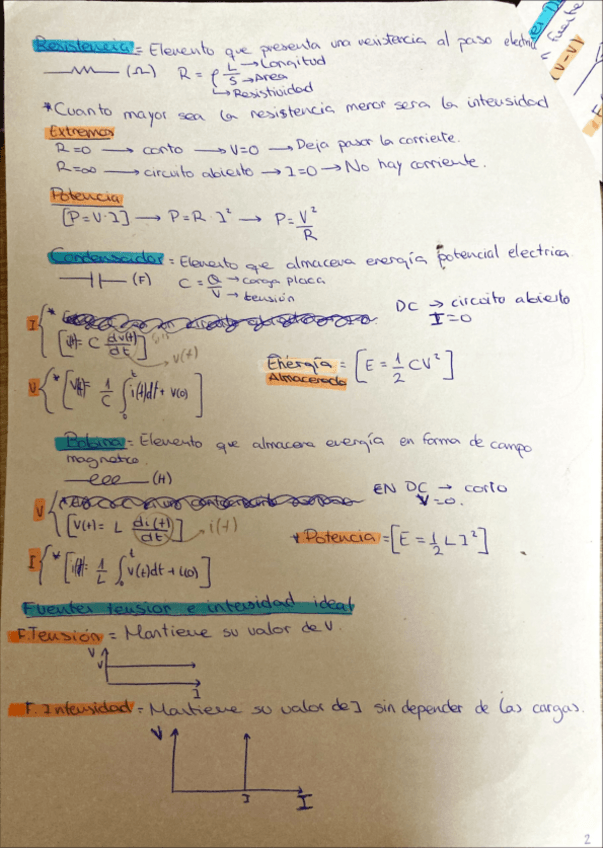 Resistencia = Elemento que presenta una resistencia al paso electric
(Ω) R = ρ L/S → Longitud → Area
→ Resistividad
*Cuanto mayor sea la resistencia menor sera la intensidad
Extremos
R=0 → corto → V=0 → Deja pasar la corriente.
R=∞ → circuito abierto → I=0 → No hay corriente.
Potencia
[P=V·I] → P=R·I² → P=V²/R
Condensador = Elemento que almacena energía potencial electrica.
(F) C = Q/V → carga placa → tensión
DC → circuito abierto
I=0
I { *
[i(t)= C dv(t)/dt] → v(t)
Energía Almacenada = [E = 1/2 CV²]
V { * [V(t)= 1/C ∫₀ᵗ i(t)dt + V(0)]
Bobina = Elemento que almacena energía en forma de campo
magnetico.
(H)
EN DC → corto
V=0.
V { *
[V(t) = L di(t)/dt] → i(t)
* Potencia = [E = 1/2 L I²]
I { * [i(t)= 1/L ∫₀ᵗ v(t)dt + i(0)]
Fuentes tension e intensidad ideal
F.Tensión = Mantiene su valor de V.
V
V
I
F. Intensidad = Mantiene su valor de I sin depender de las cargas.
V
I
I
2
fuente
(V-V)